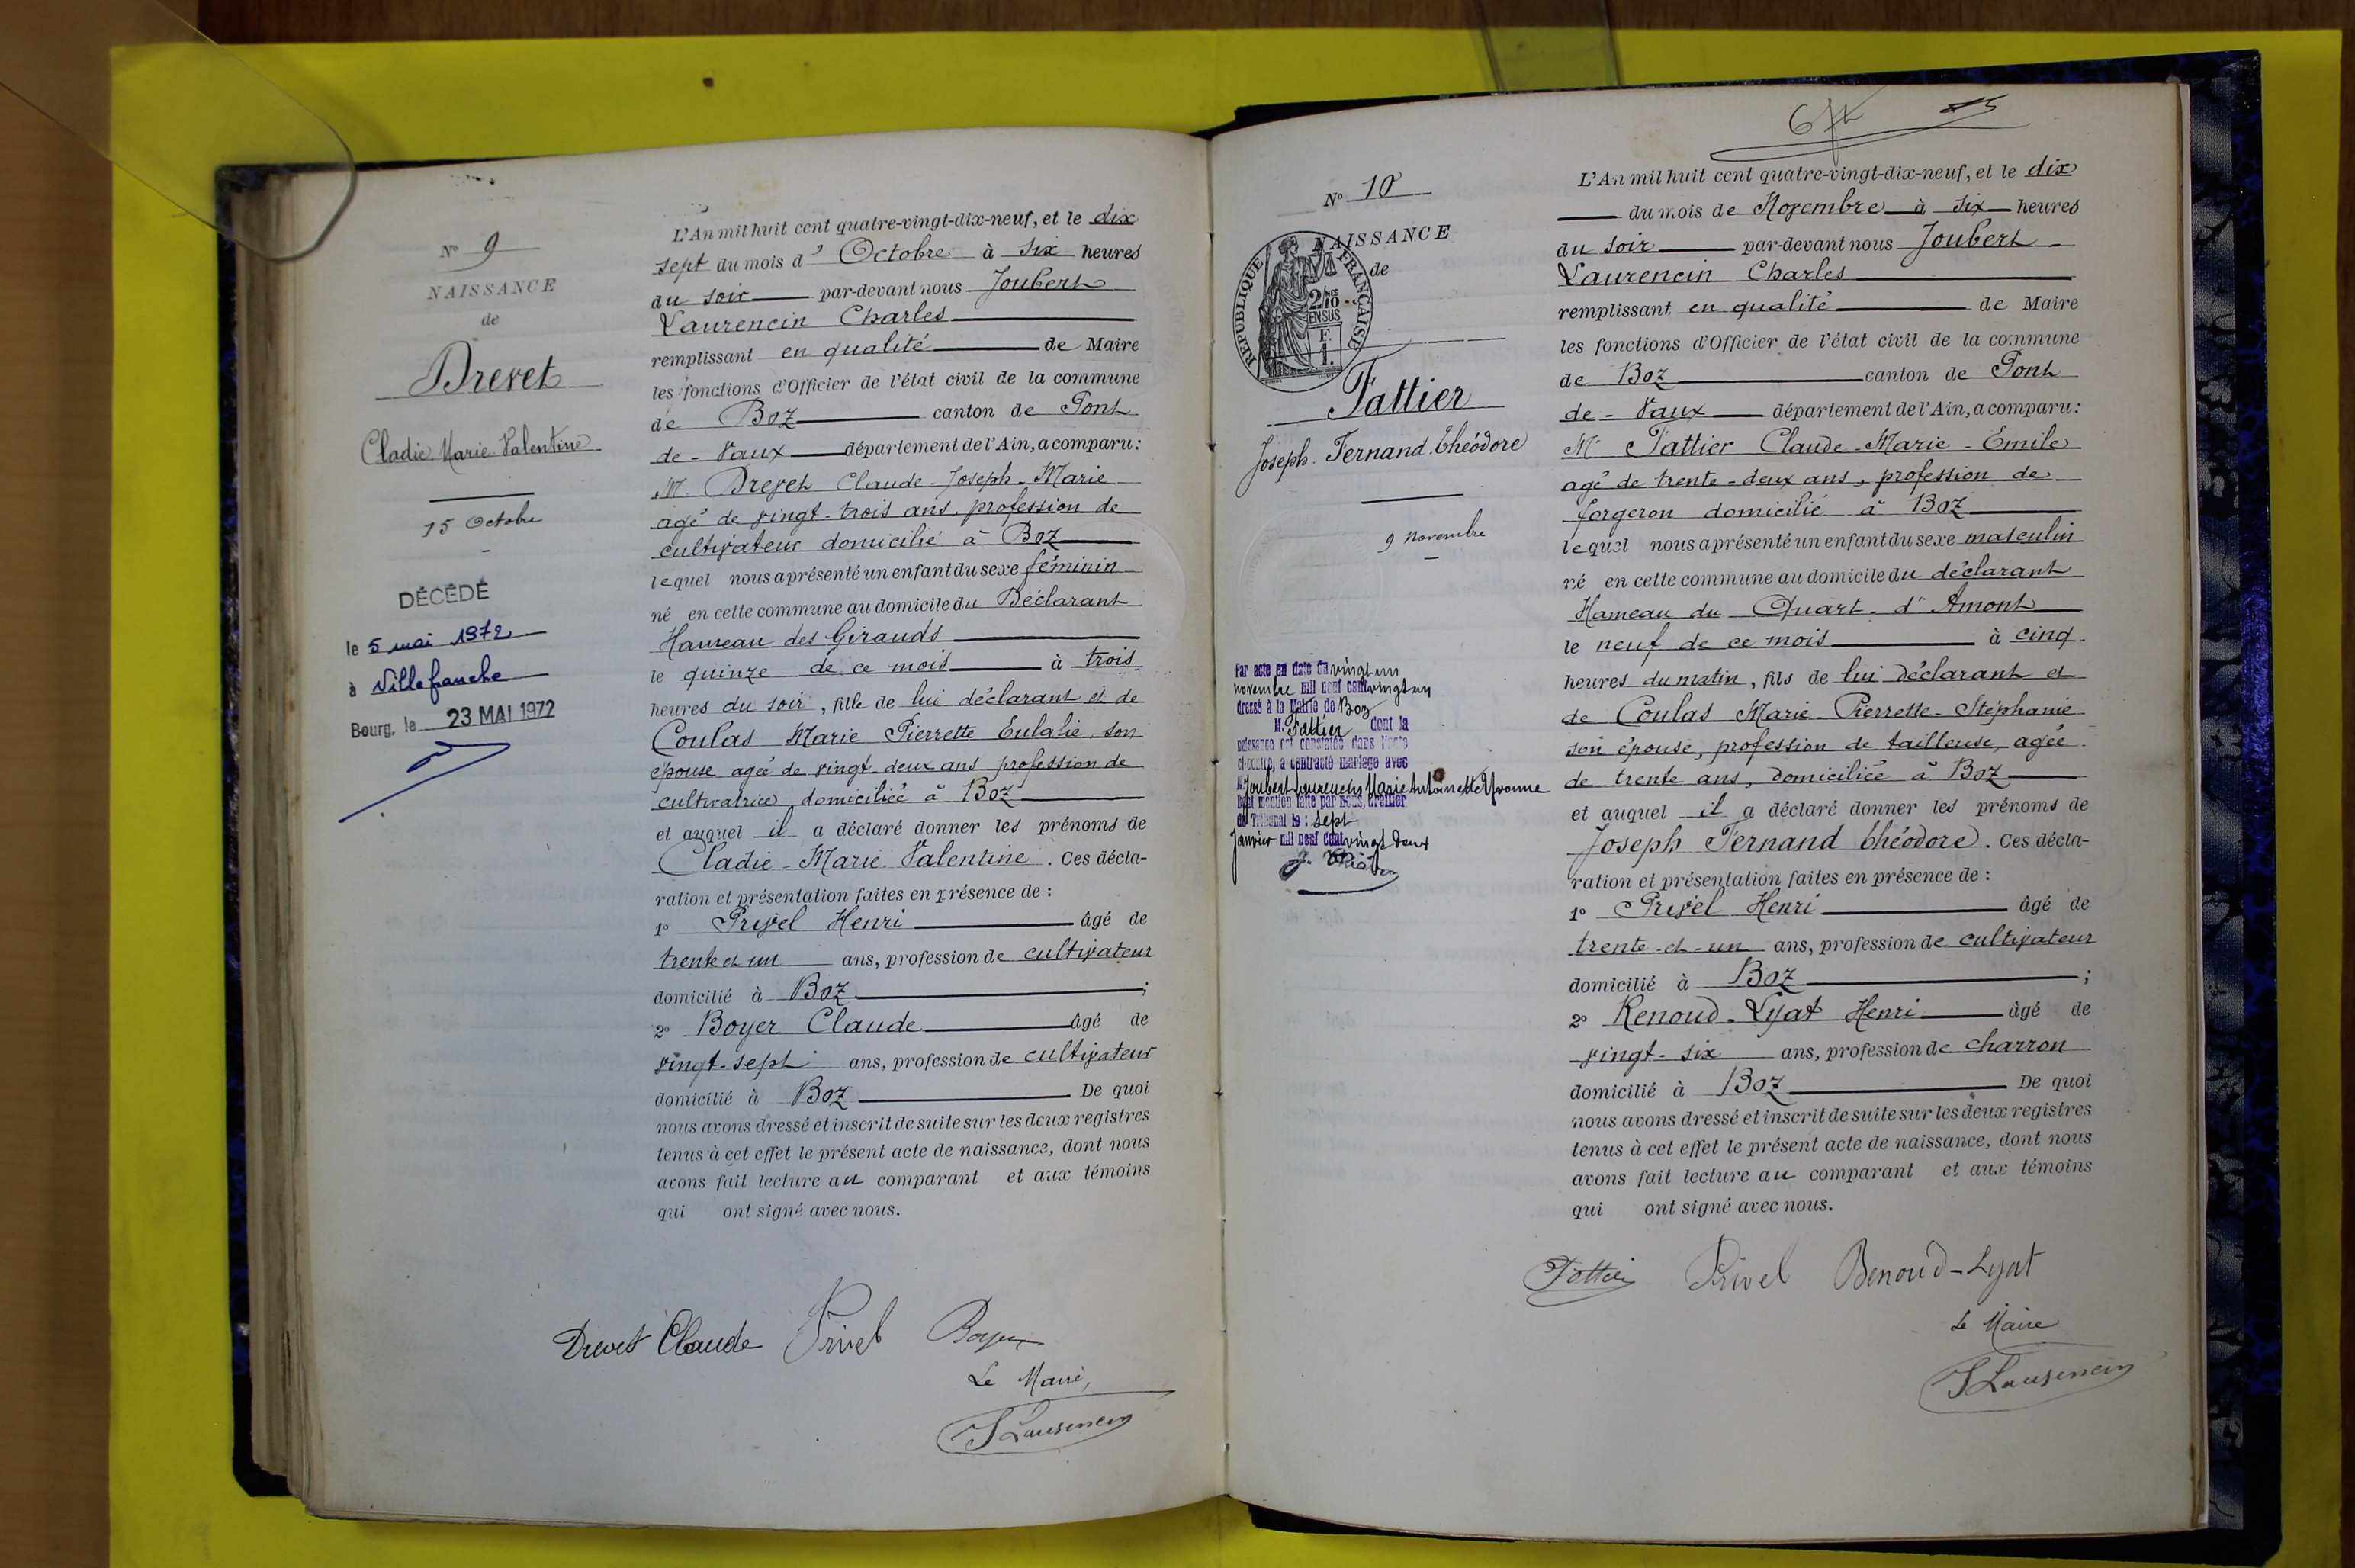 Nº 9
NAISSANCE
de
Drevet
Cladie Marie Valentine
15 Octobre
DÉCÉDÉ
le 5 mai 1972
à Villefranche
Bourg, le 23 MAI 1972
L'An mil huit cent quatre-vingt-dix-neuf, et le dix
sept du mois d' Octobre à six heures
du soir par-devant nous Joubert
Laurencin Charles
remplissant en qualité de Maire
les fonctions d'Officier de l'état civil de la commune
de Boz canton de Pont
de - Vaux département de l'Ain, a comparu :
M. Drevet Claude - Joseph - Marie
agé de vingt - trois ans, profession de
cultivateur domicilié à Boz
lequel nous a présenté un enfant du sexe féminin
né en cette commune au domicile du Déclarant
Hameau des Girauds
le quinze de ce mois à trois
heures du soir, fille de lui déclarant et de
Coulas Marie Pierrette Eulalie son
épouse agée de vingt - deux ans profession de
cultivatrice domiciliée à Boz
et auquel il a déclaré donner les prénoms de
Cladie - Marie Valentine . Ces décla-
ration et présentation faites en présence de :
1º Privel Henri âgé de
trente et un ans, profession de cultivateur
domicilié à Boz ;
2º Boyer Claude âgé de
vingt - sept ans, profession de cultivateur
domicilié à Boz De quoi
nous avons dressé et inscrit de suite sur les deux registres
tenus à cet effet le présent acte de naissance, dont nous
avons fait lecture au comparant et aux témoins
qui ont signé avec nous.
Drevet Claude Privel Boyer
Le Maire,
J Laurencin
Nº 10
NAISSANCE
de
RÉPUBLIQUE FRANÇAISE
2/10 mes
EN SUS
F.
1.
Tattier
Joseph Fernand Théodore
9 Novembre
Par acte en date du vingt un
novembre mil neuf cent vingt un
dressé à la Mairie de Boz
M. Tattier dont la
naissance est constatée dans l'acte
ci-contre, a contracté mariage avec
M Joubert Laurencin Marie Antoinette Yvonne
Dont mention faite par nous, Greffier
du Tribunal le : sept
Janvier mil neuf cent vingt deux
L'An mil huit cent quatre-vingt-dix-neuf, et le dix
du mois de Novembre à six heures
du soir par-devant nous Joubert
Laurencin Charles
remplissant en qualité de Maire
les fonctions d'Officier de l'état civil de la commune
de Boz canton de Pont
de - Vaux département de l'Ain, a comparu :
M. Tattier Claude - Marie - Emile
agé de trente - deux ans, profession de
forgeron domicilié à Boz
lequel nous a présenté un enfant du sexe masculin
né en cette commune au domicile du déclarant
Hameau du Quart - d'Amont
le neuf de ce mois à cinq
heures du matin, fils de lui déclarant et
de Coulas Marie - Pierrette - Stéphanie
son épouse, profession de tailleuse, agée
de trente ans, domiciliée à Boz
et auquel il a déclaré donner les prénoms de
Joseph Fernand Théodore . Ces décla-
ration et présentation faites en présence de :
1º Privel Henri âgé de
trente - et - un ans, profession de cultivateur
domicilié à Boz ;
2º Renoud - Lyat Henri âgé de
vingt - six ans, profession de charron
domicilié à Boz De quoi
nous avons dressé et inscrit de suite sur les deux registres
tenus à cet effet le présent acte de naissance, dont nous
avons fait lecture au comparant et aux témoins
qui ont signé avec nous.
Tattier Privel Renoud - Lyat
Le Maire
J Laurencin